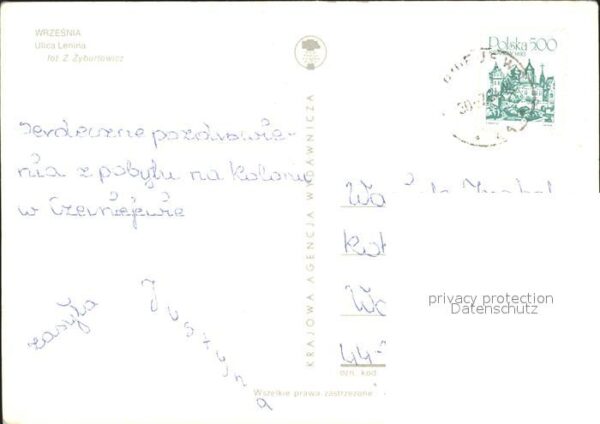 WRZEŚNIA
Ulica Lenina
fot Z Zyburtowicz
Polska 5.00
Serdeczne pozdrowie-
nia z pobytu na kolonii
w Czerniejewie
zasyła
Justyna
KRAJOWA AGENCJA WYDAWNICZA
44-
ozn. kod
Wszelkie prawa zastrzeżone
privacy protection
Datenschutz